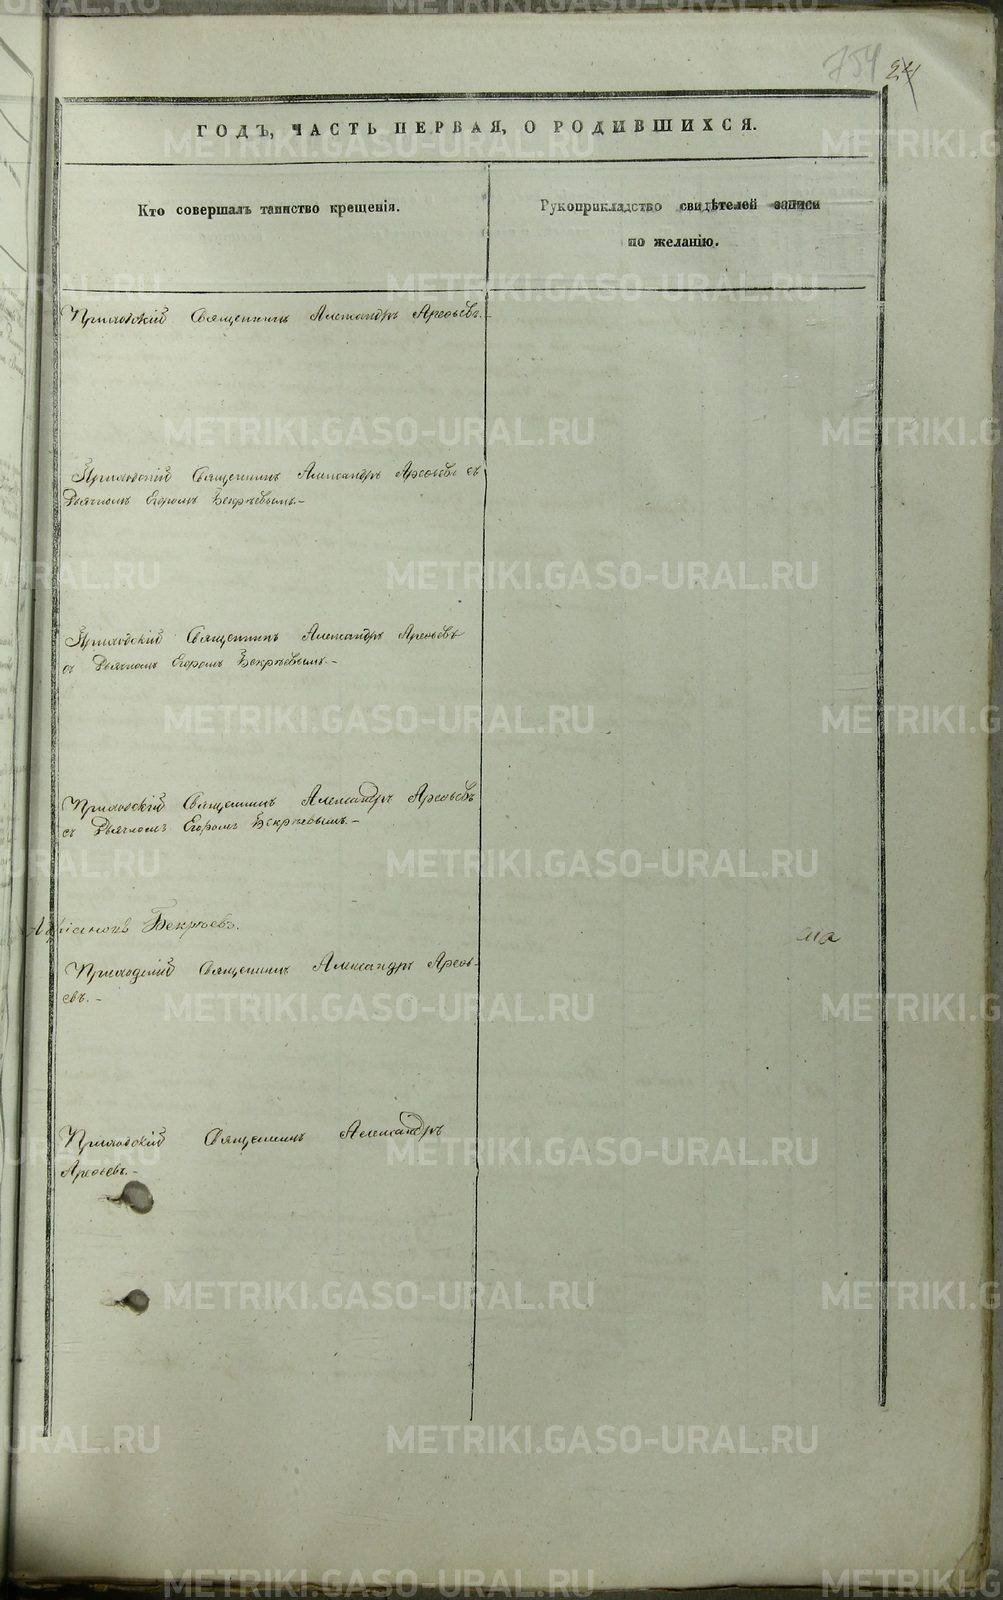 754 24
ГОДЪ, ЧАСТЬ ПЕРВАЯ, О РОДИВШИХСЯ.
Кто совершалъ таинство крещенія.
Рукоприкладство свидѣтелей записи
по желанію.
Приходскій Священникъ Александръ Арефьевъ.-
Приходскій Священникъ Александръ Арефьевъ съ
Дьячкомъ Егоромъ Бекрѣевымъ.-
Приходскій Священникъ Александръ Арефьевъ
съ Дьячкомъ Егоромъ Бекрѣевымъ.-
Приходскій Священникъ Александръ Арефьевъ
съ Дьячкомъ Егоромъ Бекрѣевымъ.-
Бекрѣевъ.
Приходскій Священникъ Александръ Арефь-
евъ.-
Приходскій Священникъ Александръ
Арефьевъ.-
METRIKI.GASO-URAL.RU